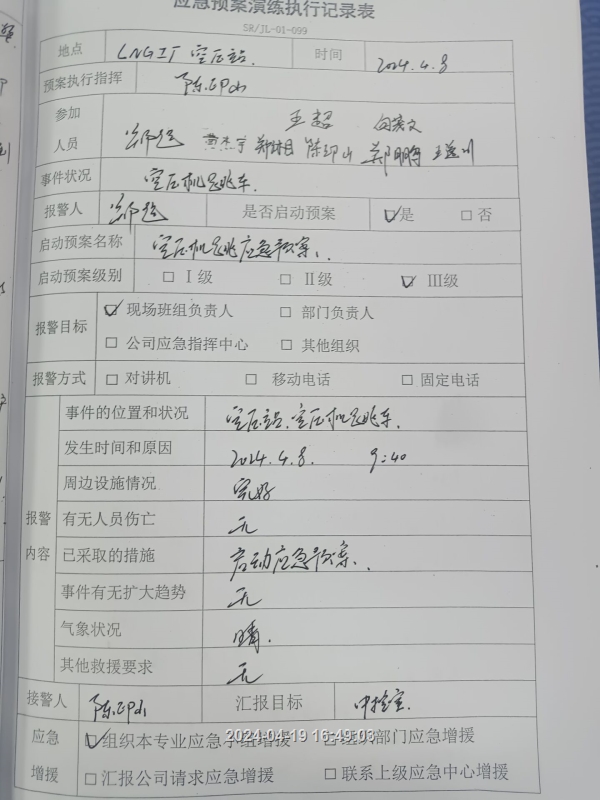 应急预案演练执行记录表
SR/JL-01-099
地点 LNG工厂 空压站. 时间 2024.4.8
预案执行指挥 陈印山
参加人员 王超
郑鹏 王
事件状况 空压机跳车.
报警人 是否启动预案 ☑是 □否
启动预案名称 空压机跳车应急预案.
启动预案级别 □Ⅰ级 □Ⅱ级 ☑Ⅲ级
报警目标 ☑现场班组负责人 □部门负责人
□公司应急指挥中心 □其他组织
报警方式 □对讲机 □移动电话 □固定电话
报警内容
事件的位置和状况 空压站.空压机跳车.
发生时间和原因 2024.4.8. 9:40
周边设施情况 完好
有无人员伤亡 无
已采取的措施 启动应急预案.
事件有无扩大趋势 无
气象状况 晴.
其他救援要求 无
接警人 陈印山 汇报目标 中控室.
应急增援 ☑组织本专业应急小组增援 □组织部门应急增援
2024-04-19 16:49:03
□汇报公司请求应急增援 □联系上级应急中心增援